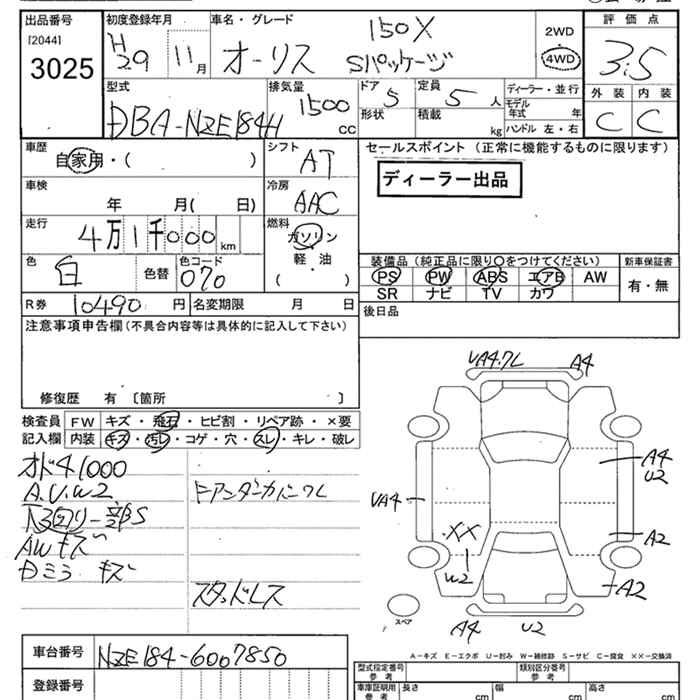 出品番号 初度登録年月 車名・グレード 2WD 評価点
[2044] 3025 H29 11月 オーリス 150X Sパッケージ 4WD 3.5
型式 DBA-NZE184H 排気量 1500 cc ドア 5 定員 5 人 ディーラー・並行 外装 内装
形状 積載 kg モデル年式 年 C C
ハンドル 左・右
車歴 自家用・( ) シフト AT セールスポイント (正常に機能するものに限ります)
車検 年 月( 日) 冷房 AAC ディーラー出品
走行 4万1千000 km 燃料 ガソリン
軽・油
( )
色 白 色替 色コード 070 装備品(純正品に限り○をつけてください) 新車保証書
PS PW ABS エアB AW 有・無
SR ナビ TV カワ
R券 10490 円 名変期限 月 日 後日品
注意事項申告欄(不具合内容等は具体的に記入して下さい)
修復歴 有 〔箇所 〕
検査員 FW キズ・飛石・ヒビ割・リペア跡・×要
記入欄 内装 キズ・汚レ・コゲ・穴・スレ・キレ・破レ
オド41000
A.U.W2 Fアンダーカバーワレ
AWキズ
Dミラ キズ
スタッドレス
VA4.ワレ A4
A4
U2
VA4
XX
W2
A2
A2
スペア
A4 U2
A-キズ E-エクボ U-凹み W-補修跡 S-サビ C-腐食 ××-交換済
車台番号 NZE184-6007850 型式指定番号 参考 類別区分番号 参考
登録番号 車庫証明用 参考 長さ cm 幅 cm 高さ cm